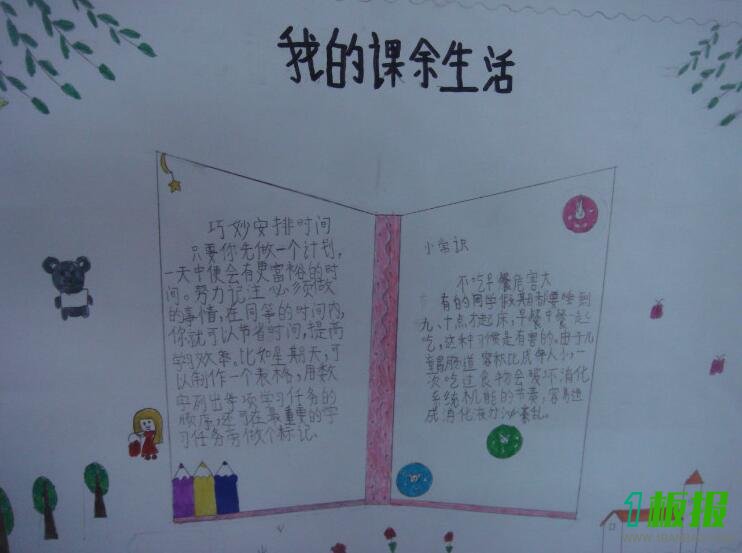 我的课余生活
巧妙安排时间
只要你先做一个计划,
一天中便会有更富裕的时
间。努力记注必须做
的事情,在同等的时间内,
你就可以节省时间,提高
学习效率。比如星期天,可
以制作一个表格,用数
字列出每项学习任务的
顺序,还可在最重要的学
习任务旁做个标记.
小常识
不吃早餐危害大
有的同学假期都要睡到
九、十点才起床,早餐中餐一起
吃,这种习惯是有害的。由于儿
童胃肠道容积比成年人小,一
次吃过食物会破坏消化
系统机能的节奏,容易造
成消化液分泌紊乱。
1板报
WWW.1BANBAO.COM